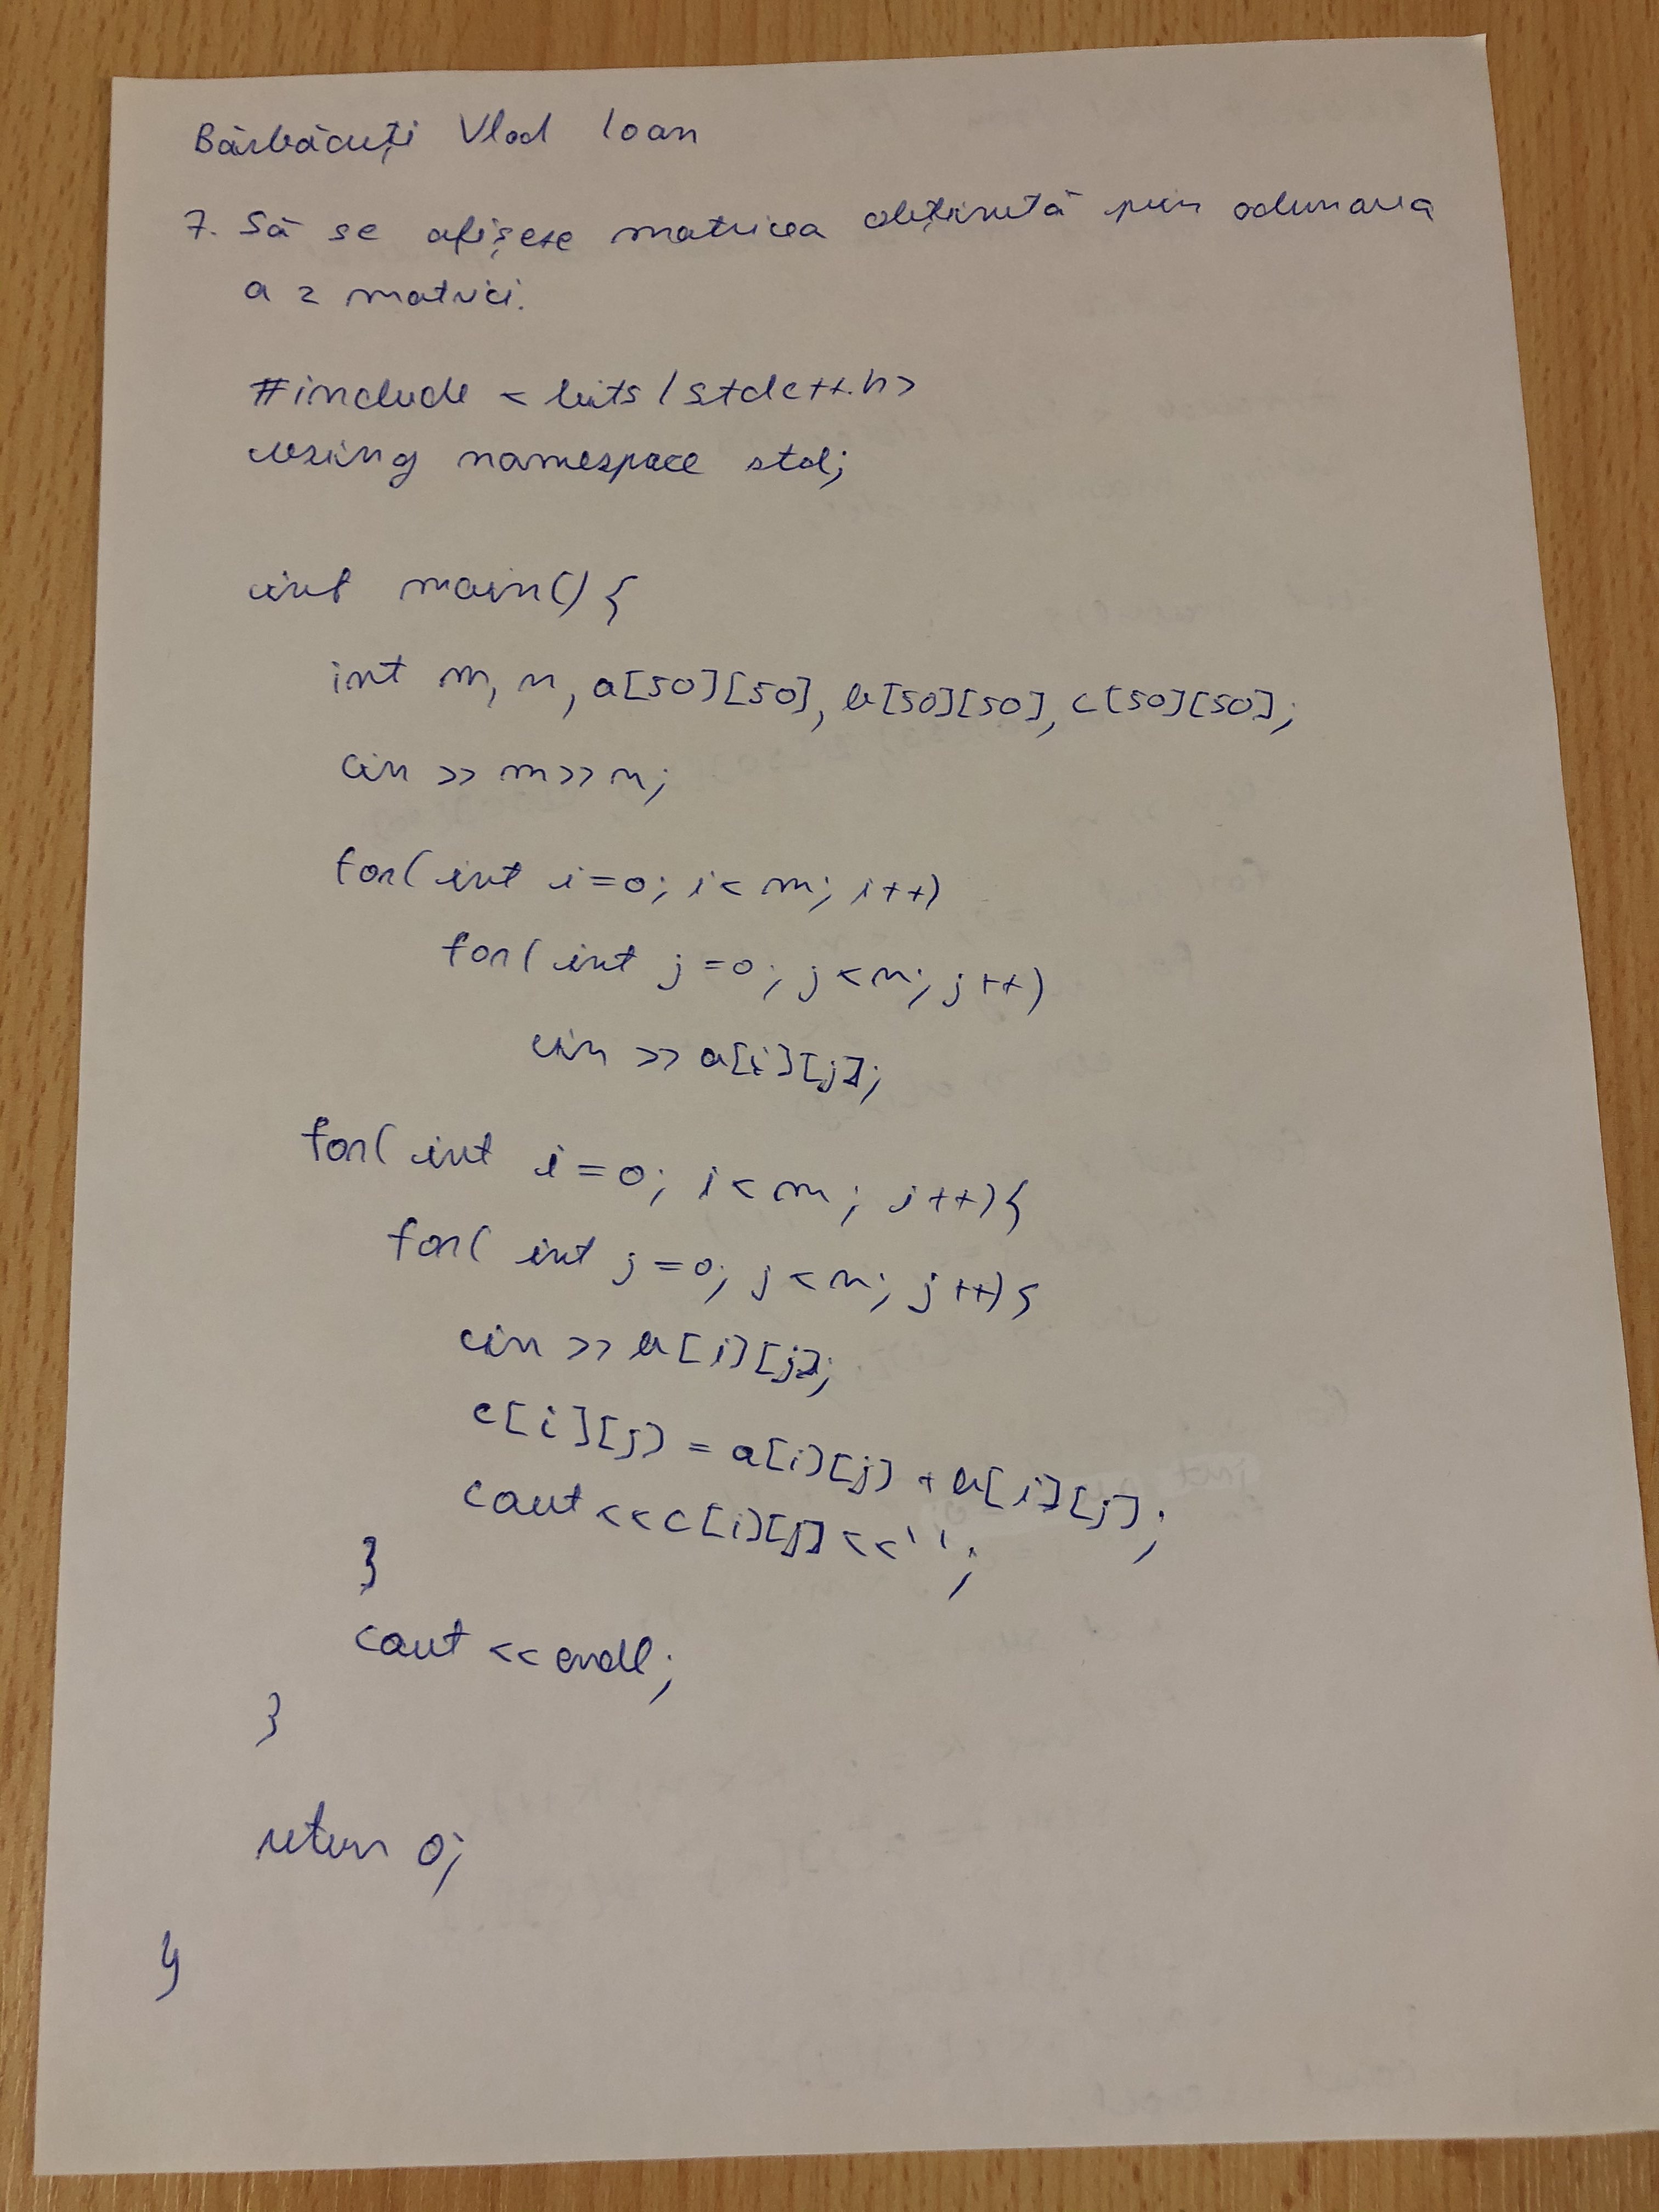 Bărbăcuți Vlad Ioan
7. Să se afișeze matricea obținută prin adunarea
a 2 matrici.
#include <bits/stdc++.h>
using namespace std;
int main(){
int m, n, a[50][50], b[50][50], c[50][50];
cin >> m >> n;
for(int i=0; i<m; i++)
for(int j=0; j<n; j++)
cin >> a[i][j];
for(int i=0; i<m; i++){
for(int j=0; j<n; j++){
cin >> b[i][j];
c[i][j] = a[i][j] + b[i][j];
cout << c[i][j] << ' ';
}
cout << endl;
}
return 0;
}